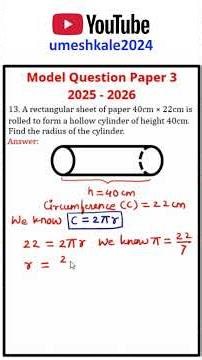 YouTube
umeshkale2024
Model Question Paper 3
2025 - 2026
13. A rectangular sheet of paper 40cm × 22cm is
rolled to form a hollow cylinder of height 40cm.
Find the radius of the cylinder.
Answer:
h = 40 cm
Circumference (C) = 22 cm
We know C = 2πr
22 = 2πr We know π = 22/7
r = 2